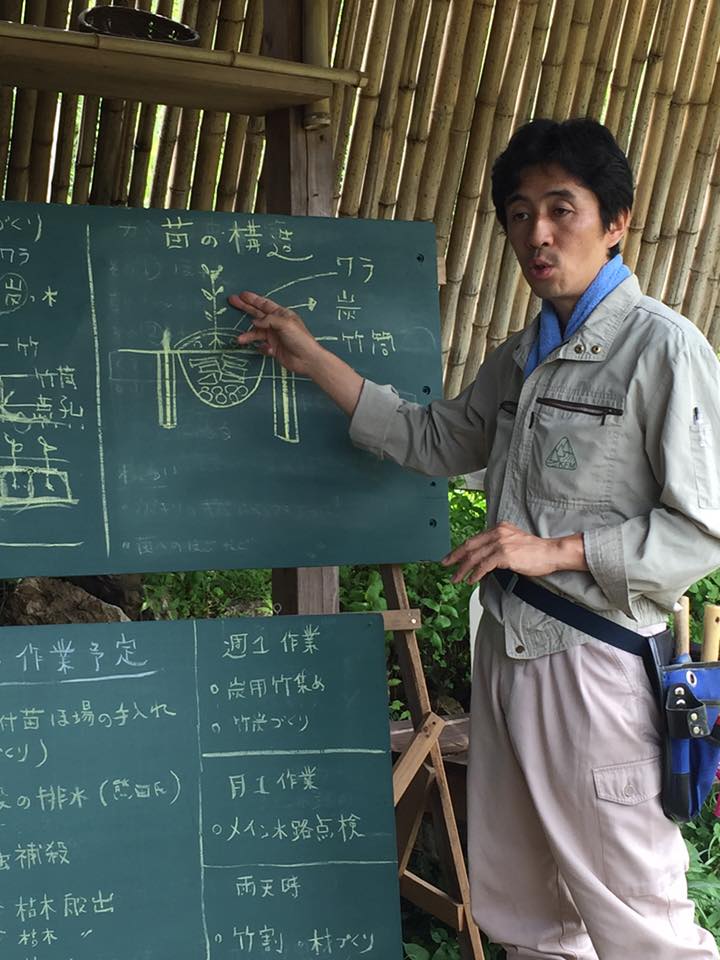 づくり)
ワラ
炭。木
竹
竹筒
苗の構造
ワラ
炭
竹筒
KFM
作業予定
付苗ほ場の手入れ
づくり)
の排水(熊田氏)
虫補殺
枯木取出
枯木 〃
週1作業
○炭用竹集め
○竹炭づくり
月1作業
○メイン水路点検
雨天時
○竹割 材づくり